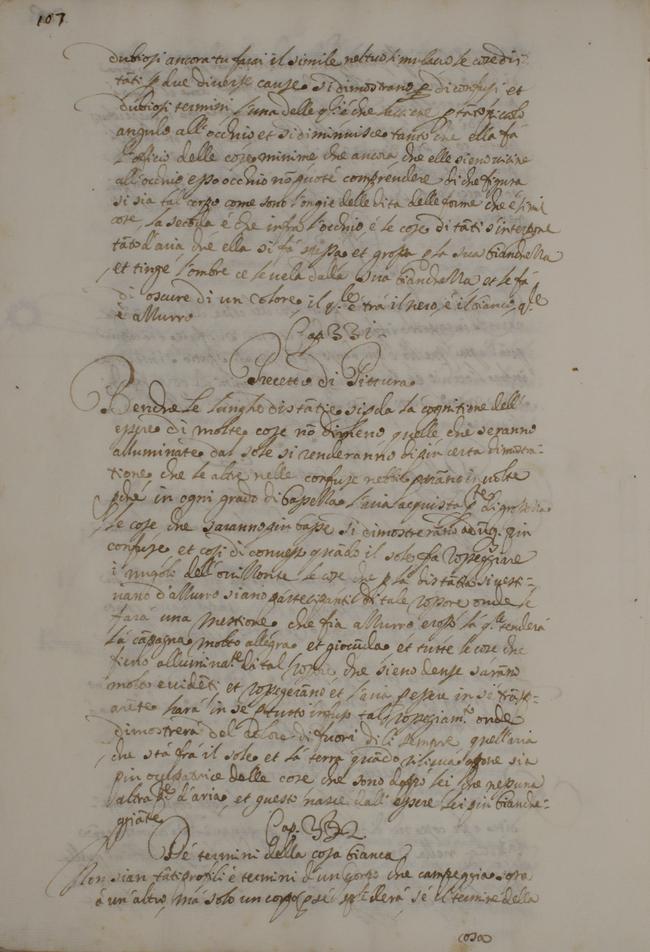 107
dubiosi ancora tu farai il simile nel tuo simulacro le cose dis-
tāti p due diverse cause si dimostrano di confusi et
dubiosi termini l'una delle qli è che
angulo all'occhio et si diminuisce tanto che ella fà
l'officio delle cose minime che ancora che elle sieno vicine
all'occhio esso occhio nō puote comprendere di che figura
si sia tal corpo come sono l'ongie delle dita delle forme che è simi
cose, la seconda é che infra l'occhio é le cose distāti s'interpone
tāto d'aria che ella si fà spessa et grossa p la sua bianchezza
et tinge l'ombre e le vela dalla sua bianchezza et le fà
di oscure di un colore, il qle é trà il nero, é il bianco, qle
è azzurro
Cap. 331.
Precetto di Pittura
Benche le lunghe distātie si pda la cognitione dell'
essere di molte cose nō dimeno quelle che seranno
alluminate dal sole si renderanno di piu certa dimostra-
tione che le altre nelle confuse nebbie parāno involte
pché in ogni grado di bassezza l'aria acquista
le cose che saranno piu basse si dimostreranno piu
confuse et cosi di converso quādo il sole fa rosseggiare
i nugoli dell'orizzonte le cose che p la distātia si vesti-
vano d'azzurro siano partecipanti di tale rossore onde se
farà una mestione che fia azzurro e rosso la qle renderà
la cāpagna molto allegra et gioconda et tutte le cose che
fieno alluminate di tal rossore che sieno dense sarāno
molto evidēti et rosegierāno et l'aria p essere in sé traspa-
rēte harà in se p tutto infuso tal rossegiamto onde
dimostrerà del colore di fuori di sempre quell'aria
che stà frà il sole et la terra quādo si sia
piu occupatrice delle cose che sono doppo lei che nesuna
altra d'aria, et questo nasce dall'essere lei piu bianche-
giāte
Cap. 332
De termini della cosa bianca
Non sian tāti profili é termini d'un corpo che campeggia sora
a un'altro, má solo un corpo p sé spiccherà sé il termine della
cosa